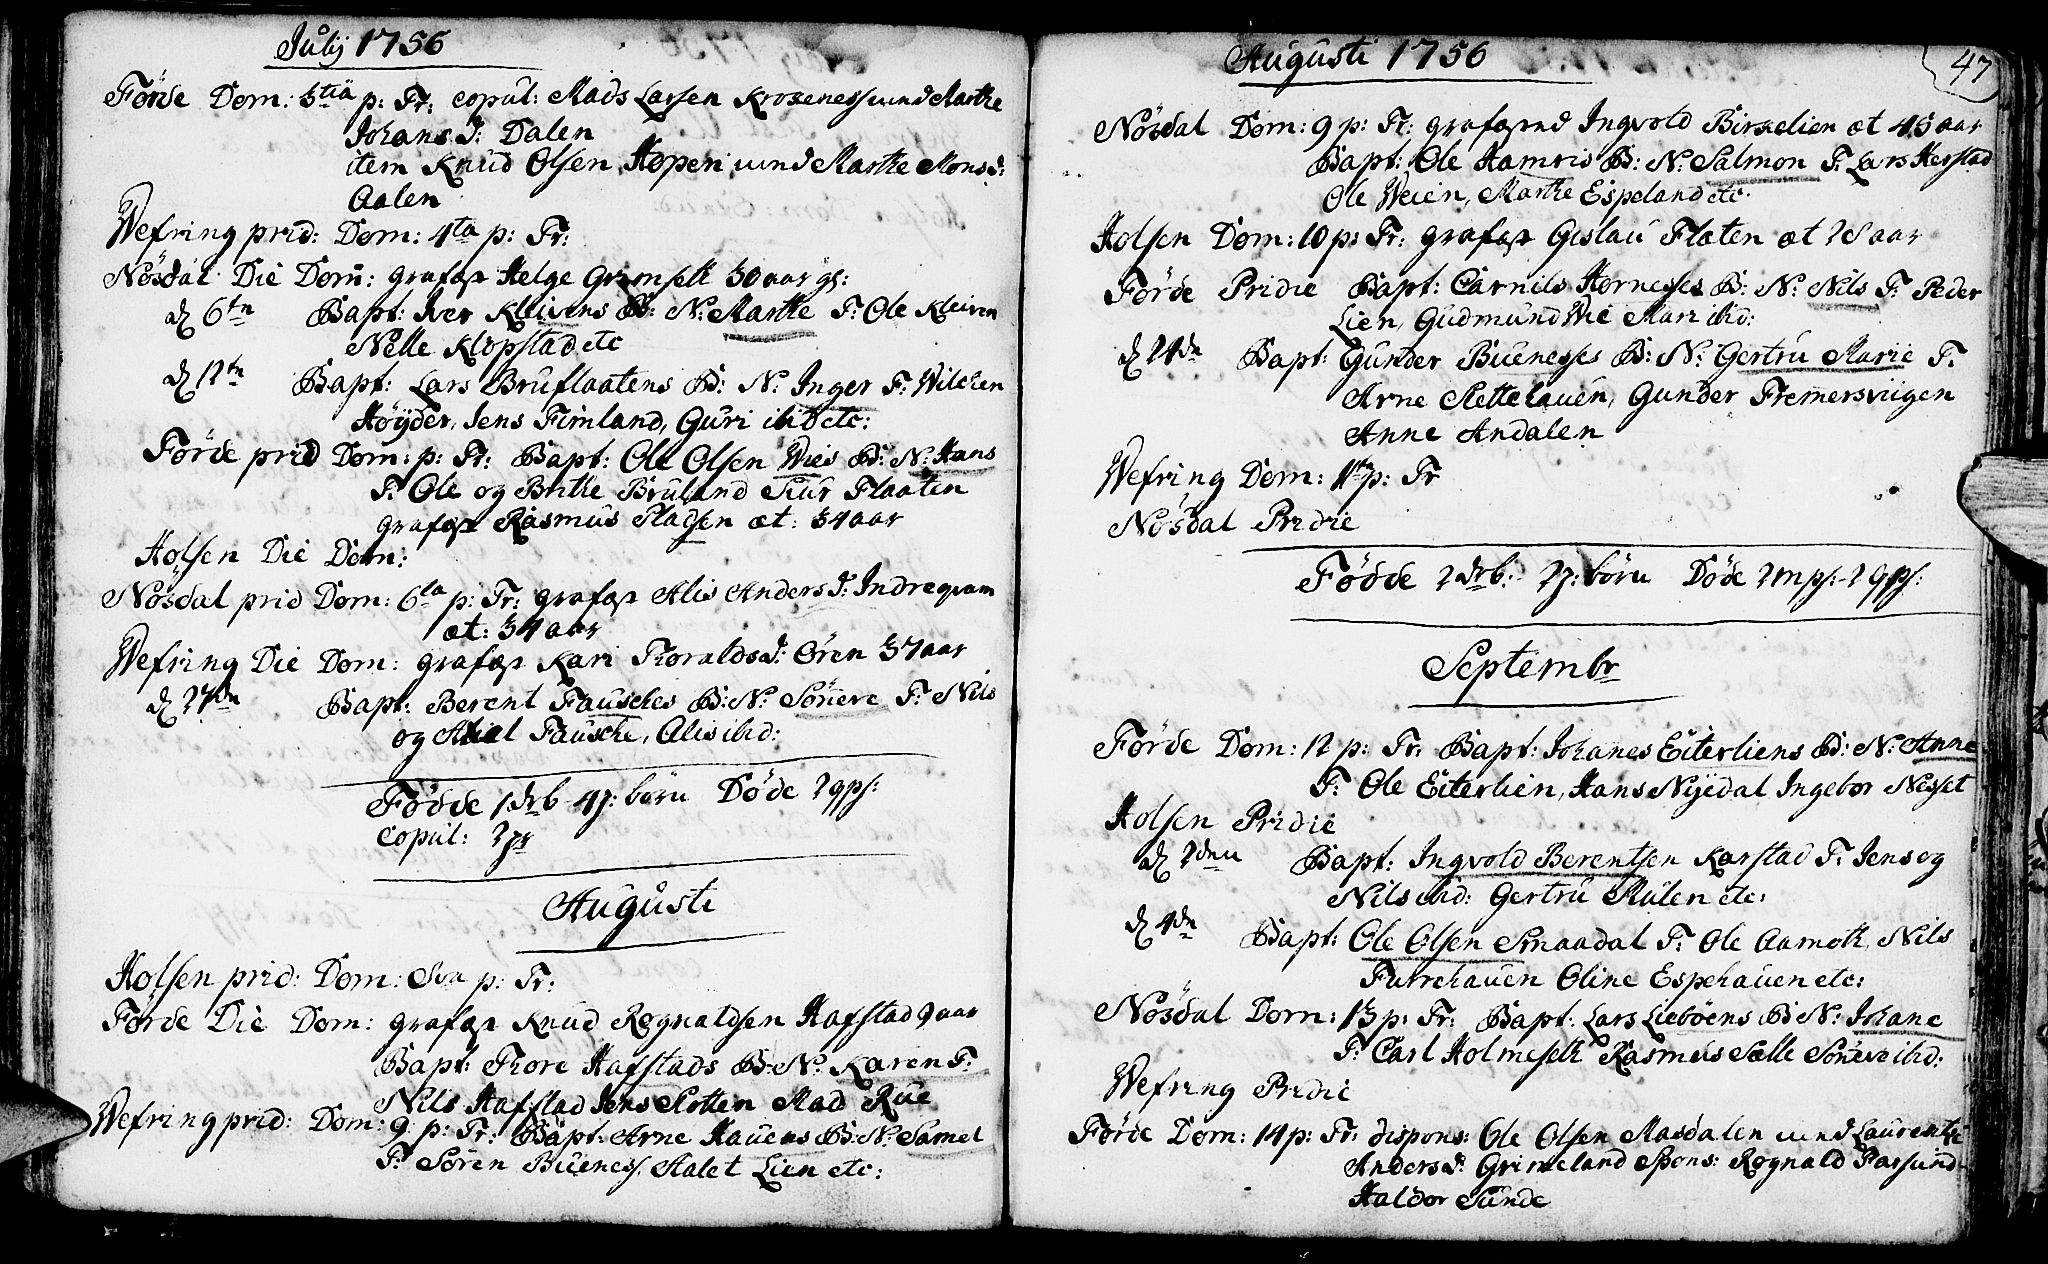 July 1756
Førde Dom: 3tia p: Tr: copul: Mads Larsen Kroseness und Marthe
Johans D: Dalen
item Knud Olsen Hopen und Marthe Mons d:
Aalen
Wefring prid: Dom: 4ta p: Tr:
Nøsdal Die Dom: grafæst Helge Gromselt 30 aar gl:
d 6tn Bapt: Iver Kleivens B: N: Marthe F: Ole Kleiven
Nelle Klopstad etc
d 12tn Bapt: Lars Bruflaatens B: N: Inger F: Wilchen
Høyder, Jens Fimland, Guri ibid etc:
Førde prid Dom: p: Tr: Bapt: Ole Olsen Wies B: N: Hans
F: Ole og Brithe Bruland Siur Flaaten
grafæst Rasmus Pladsen æt: 34 aar
Holsen Die Dom:
Nøsdal prid Dom: 6ta p: Tr: grafæst Alis Anders D: Indreqvam
æt: 34 aar
Wefring Die Dom: grafæst Kari Thoralds d: Ören 37 aar
d 27dn Bapt: Berent Fausches B: N: Sönneve F: Nils
og Fausche, Alis ibid:
Födde 1 drb 4 p: börn Döde 2 qps:
copul: 2 pr
Augusti
Holsen prid: Dom: 8va p: Tr:
Førde Die Dom: grafæst Knud Rognaldsen Hafstad 9 aar
Bapt: Thore Hafstads B: N: Karen F:
Nils Hafstad Jens Slotten Mad Rue
Wefring prid: Dom: 9 p: Tr: Bapt: Arne Hauens B: N: Samel
F: Sören Buenes, Malet Lien etc:
Augusti 1756
47
Nösdal Dom: 9 p: Tr: grafæst Ingvold Birkelien æt 45 aar
Bapt: Ole Hamris B: N: Salmon F: Lars Herstad
Ole Weien, Marthe Espeland etc.
Holsen Dom: 10 p: Tr: grafæst Gislau Flaten æt 28 aar
Förde Pridie Bapt: Carnils Hornesses B: N: Nils F: Peder
Lien, Gudmund Wie Mari ibid:
d 24dn Bapt: Gunder Buenesses B: N: Gertru Marie F:
Arne Slettehauen, Gunder Fremersviigen
Anne Andalen
Wefring Dom: 11te p: Tr
Nösdal Pridie
Födde 2 drb: 2 p: börn Döde 2 mps: 2 qps:
Septembr
Förde Dom: 12 p: Tr. Bapt: Johanes Eiterliens B: N: Anne
F: Ole Eiterlien, Hans Nyedal Ingebor Nesset
Holsen Pridie
d 2den Bapt: Ingvold Berentsen Karstad F: Jens og
Nils ibid: Gertru Mulen etc:
d 4dn Bapt: Ole Olsen Smaadal F: Ole Aamoth, Nils
Furrehauen Oline Espehauen etc:
Nösdal Dom: 13 p: Tr: Bapt: Lars Lieböens B N: Johane
F: Carl Holmeselt Rasmus Sælle Sönneve ibid:
Wefring Pridie
Förde Dom: 14 p: Tr: dispons: Ole Olsen Masdalen und Laurentse
Anders d: Grimeland Spons: Rognald Farsund
Haldor Sunde